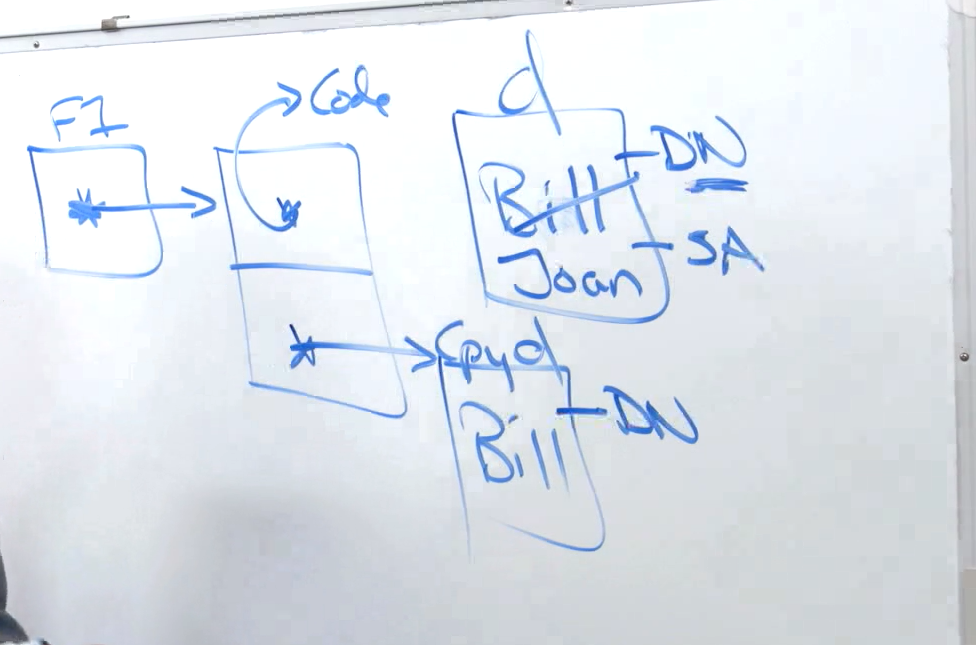 F1
Code
d
Bill
DN
Joan
SA
Cpy d
Bill
DN